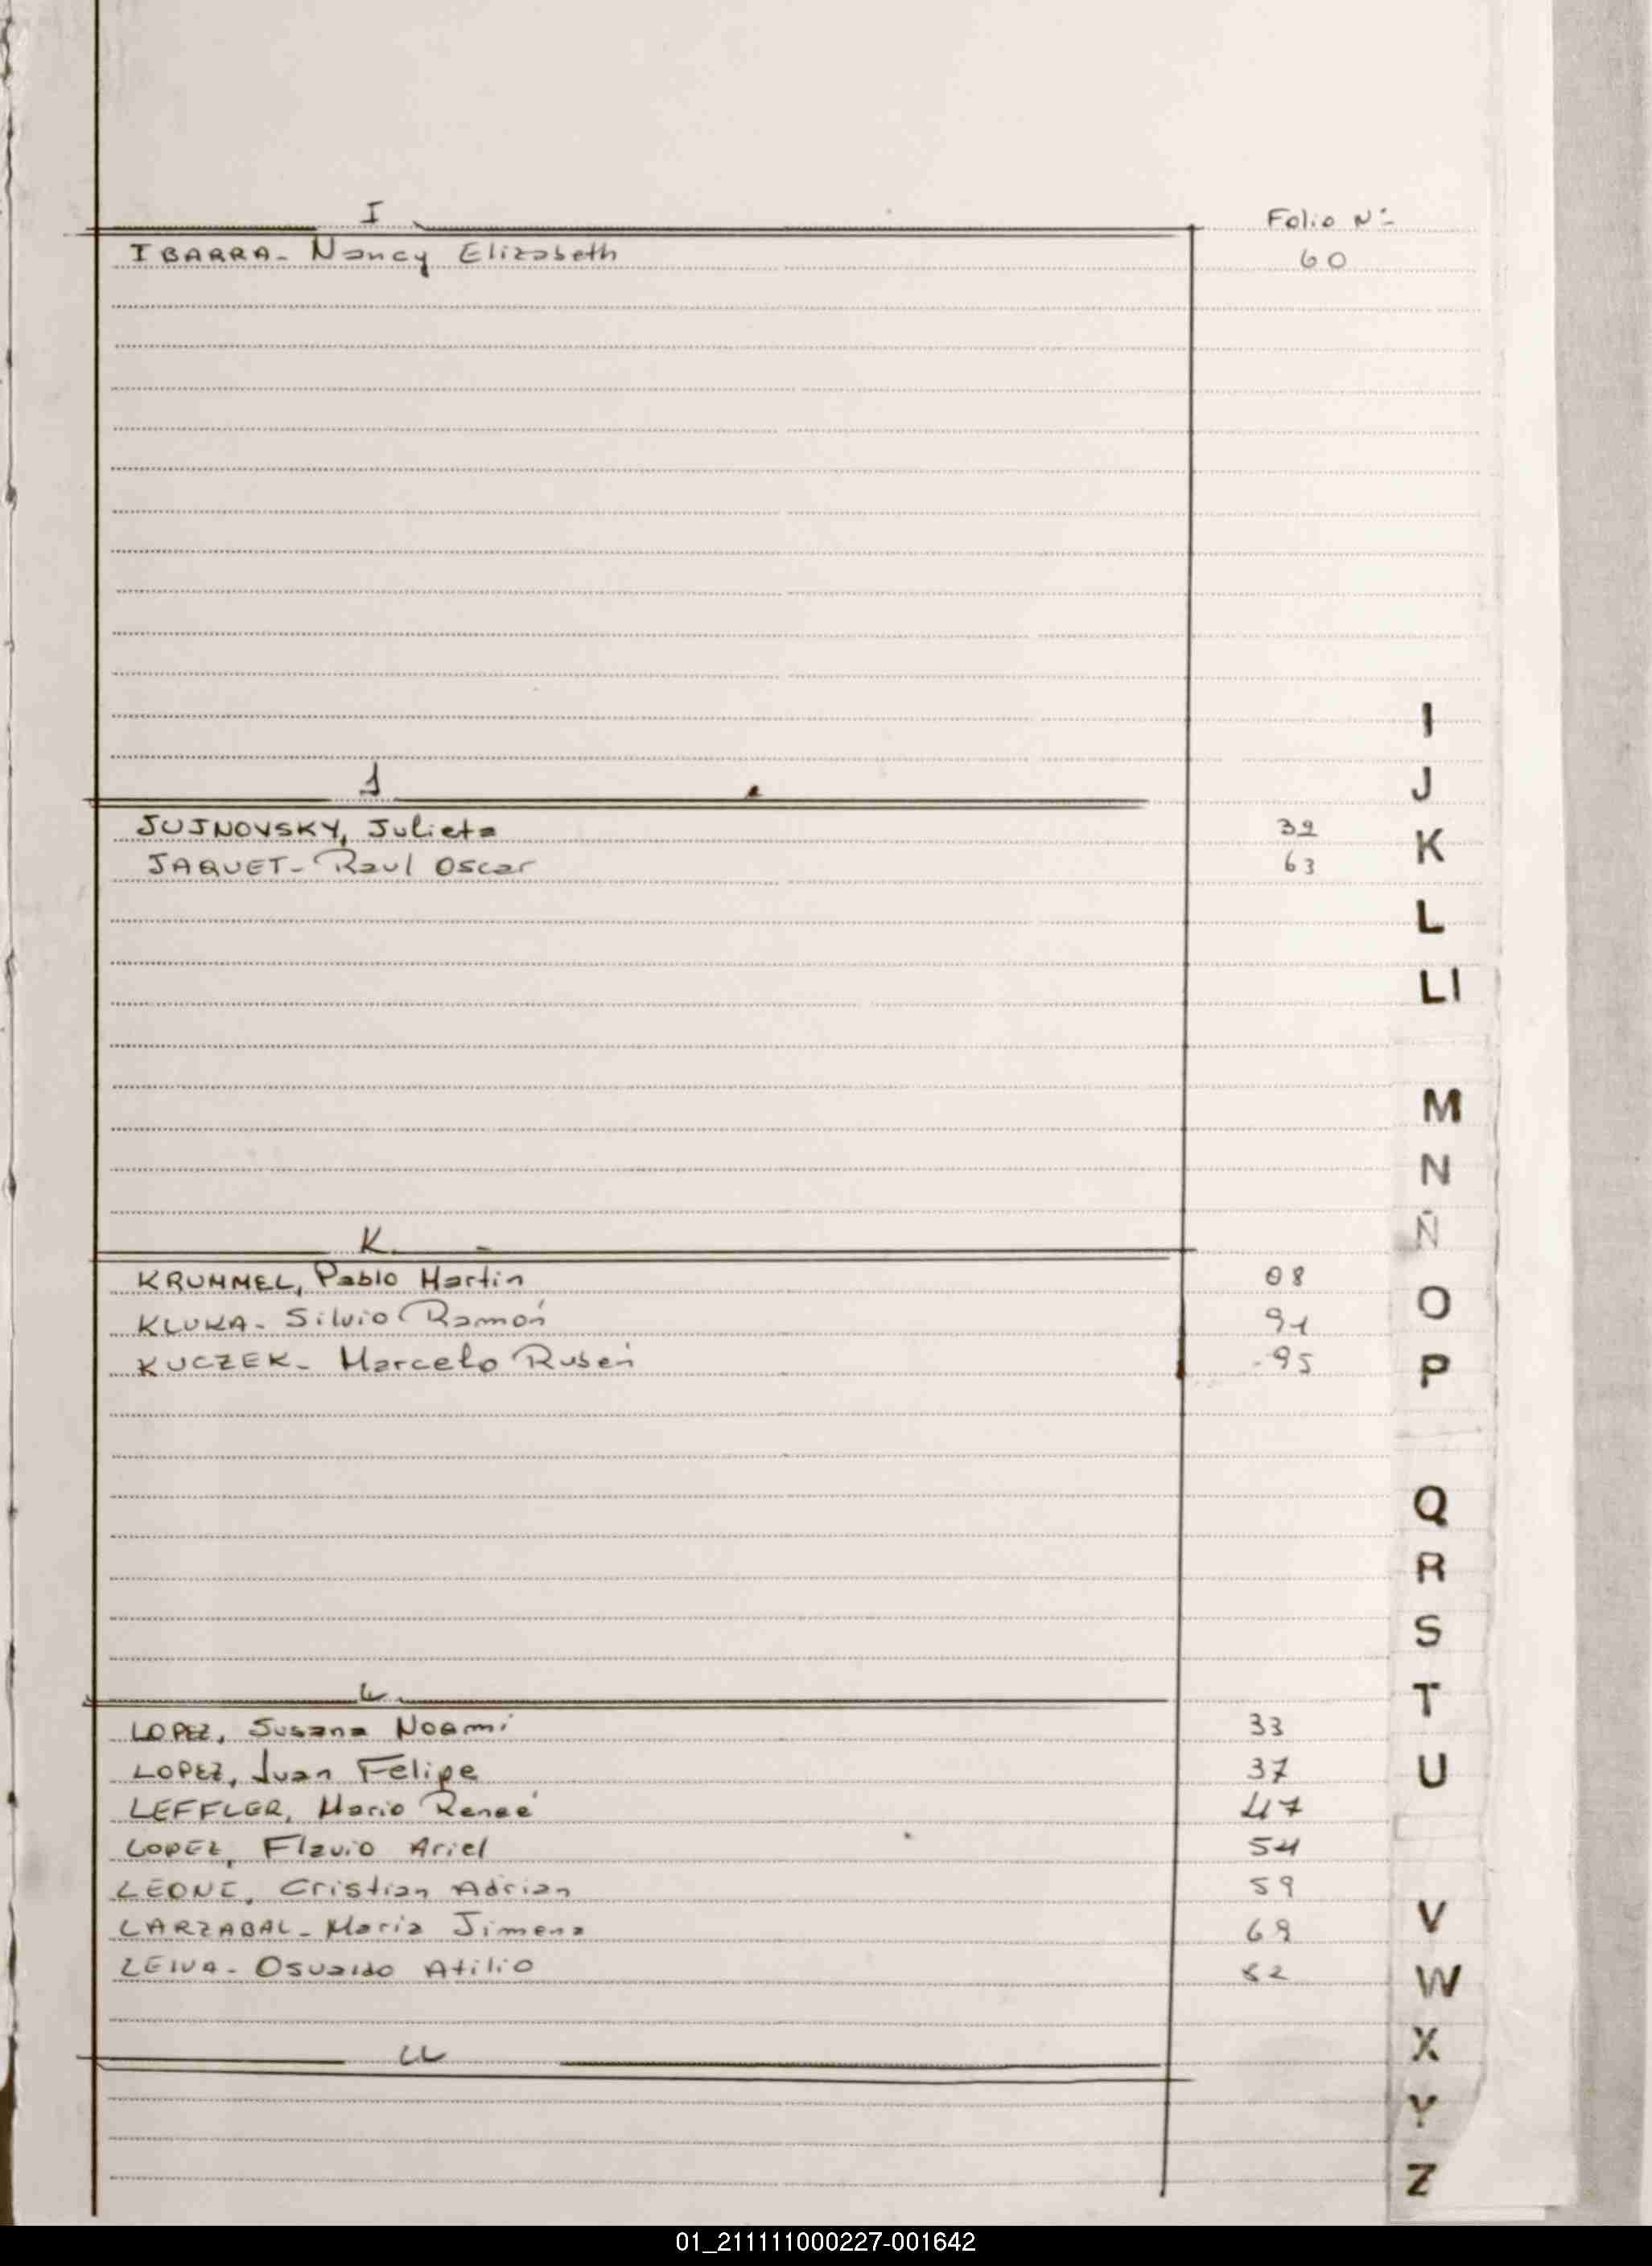 I Folio Nº
IBARRA- Nancy Elizabeth 60
I
J
J
JUJNOVSKY, Julieta 39
K
JAQUET- Raul Oscar 63
L
Ll
M
N
Ñ
K
KRUMMEL, Pablo Martin 08
O
KLUKA- Silvio Ramón 91
KUCZEK- Marcelo Ruben 95
P
Q
R
S
L
T
LOPEZ, Susana Noemi 33
LOPEZ, Juan Felipe 37
U
LEFFLER, Mario Reneé 47
LOPEZ, Flavio Ariel 54
LEONE, Cristian Adrian 59
LARZABAL- Maria Jimena 69
V
LEIVA- Osvaldo Atilio 82
W
LL
X
Y
Z
01_211111000227-001642